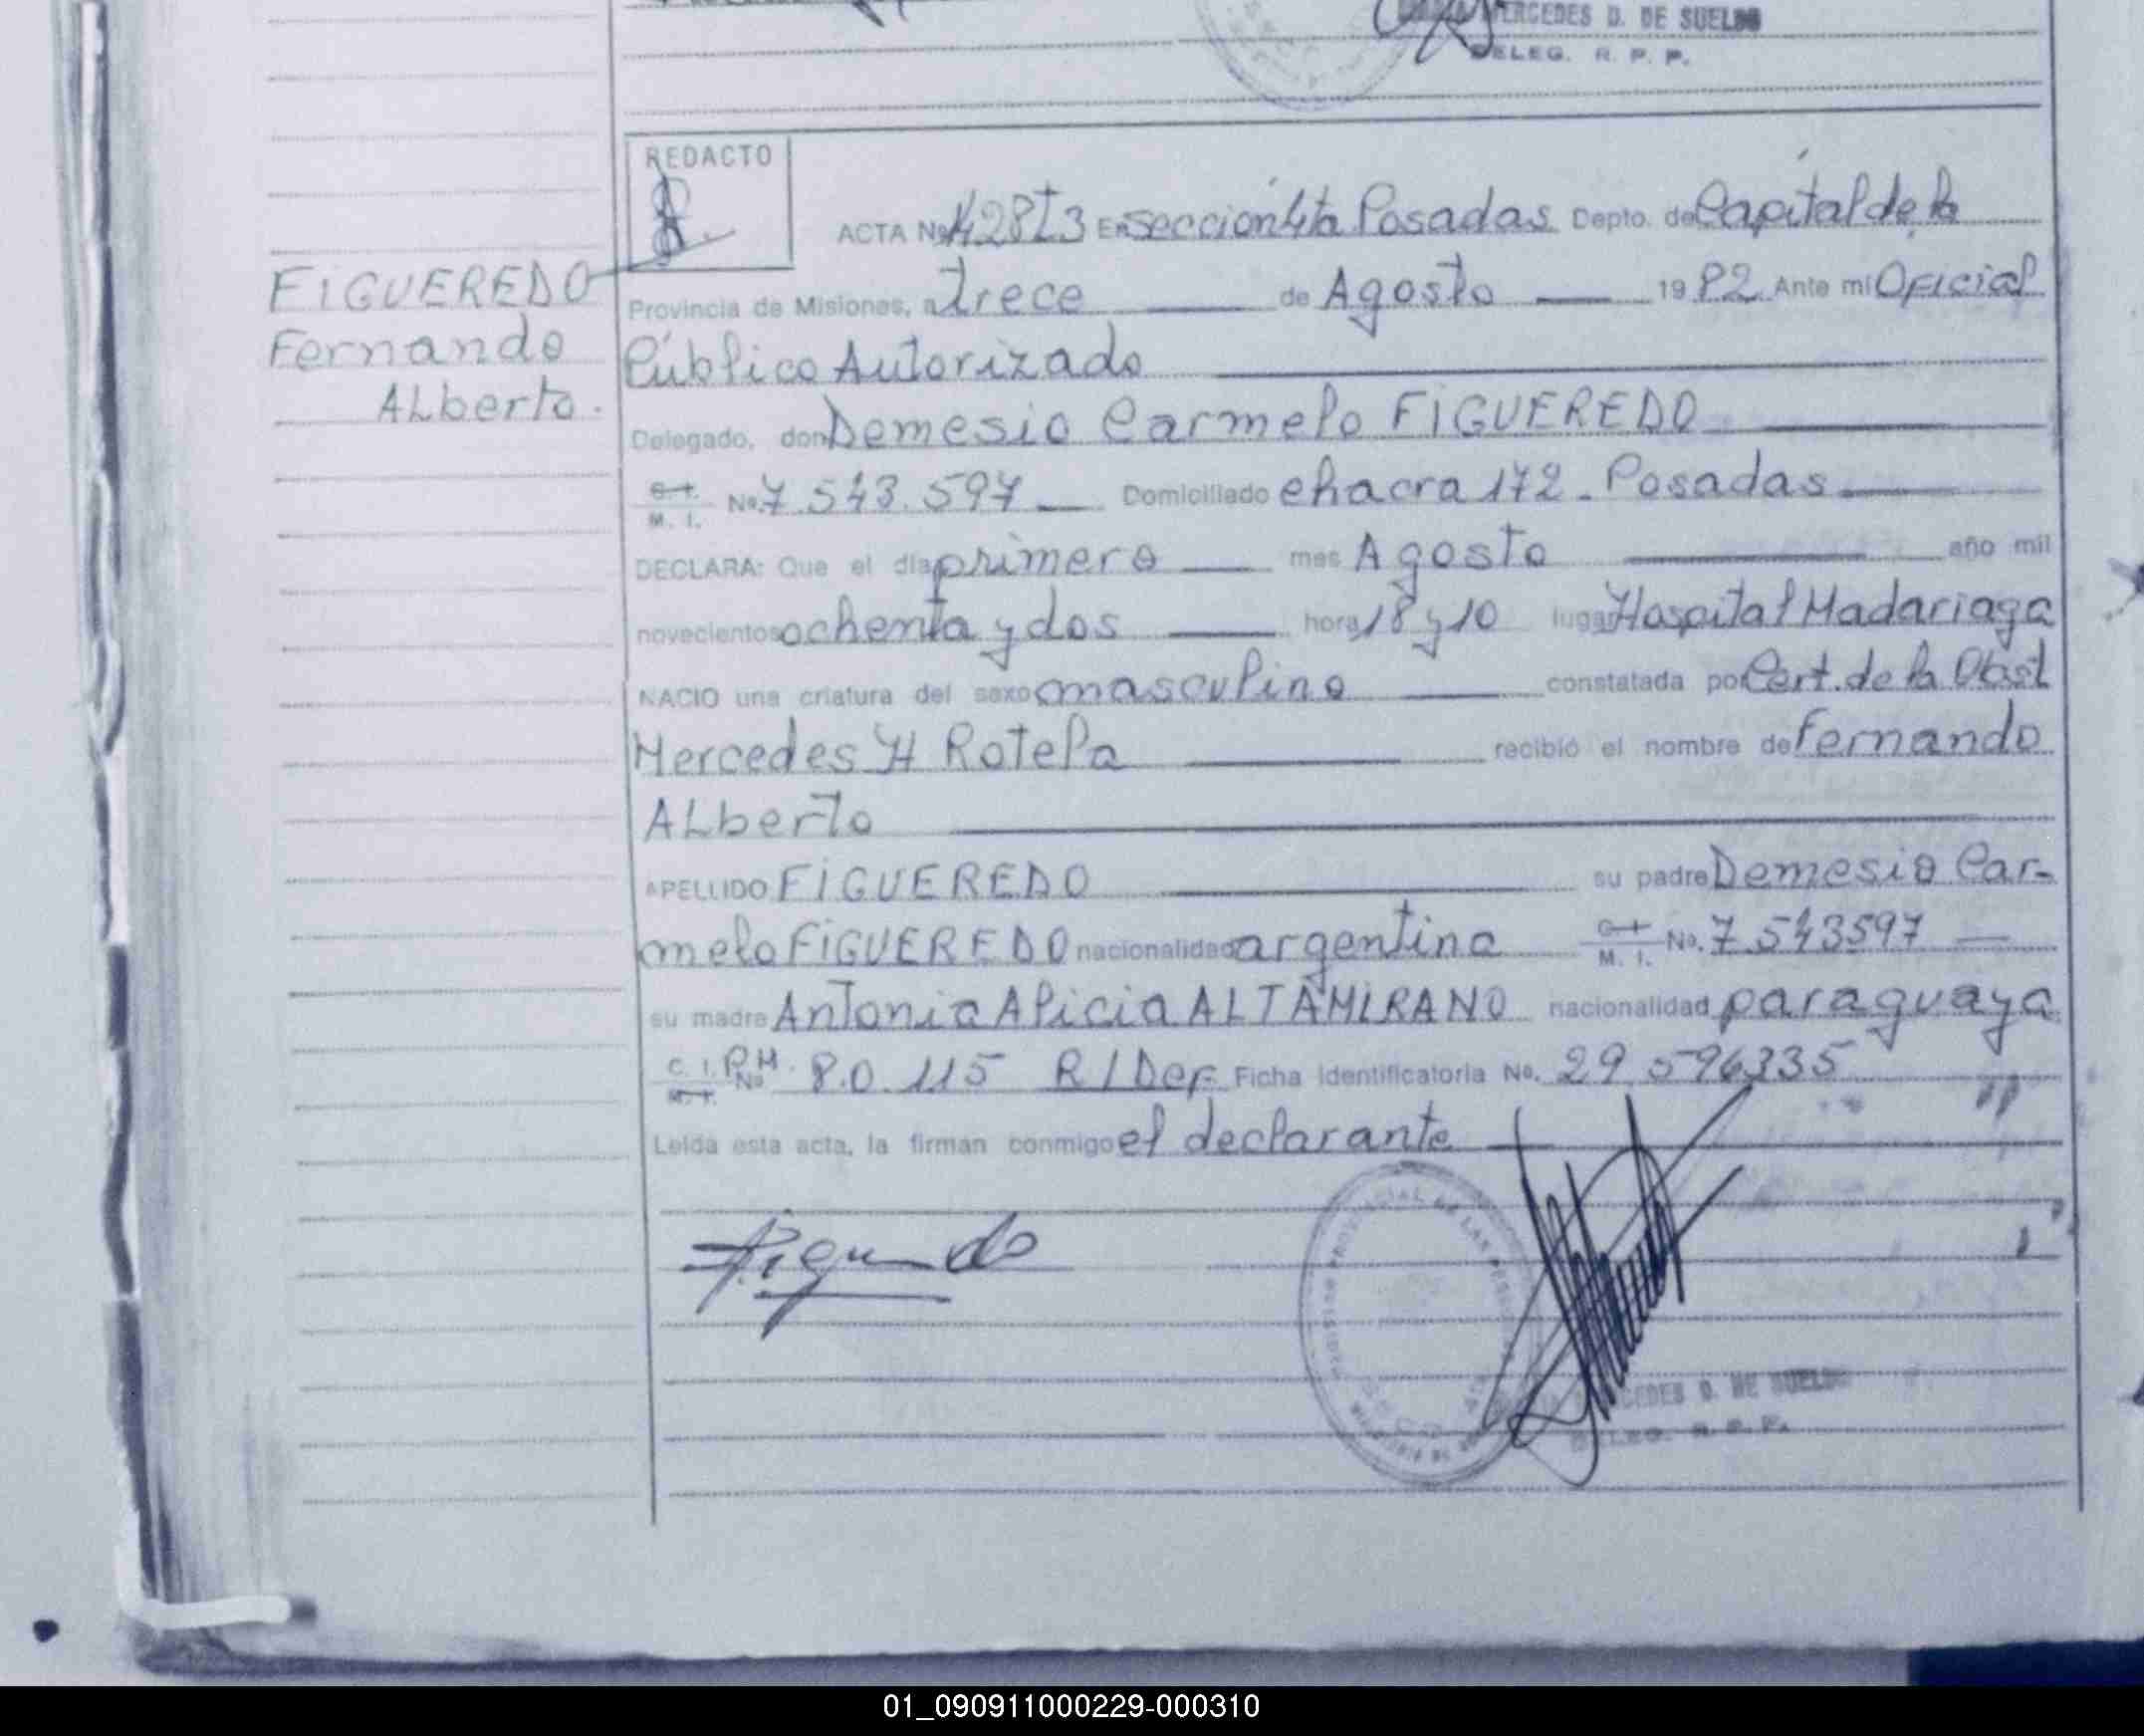 MERCEDES D. DE SUELDO
DELEG. R. P. P.
REDACTO
ACTA No 428T3 En sección 4ta Posadas Depto. de Capital de la
FIGUEREDO
Fernando
ALberto.
Provincia de Misiones, a trece de Agosto 1982 Ante mi Oficial
Público Autorizado
Delegado, don Demesio Carmelo FIGUEREDO
C. I. M. I. No. 7.543.597 Domiciliado chacra 172 - Posadas
DECLARA: Que el día primero mes Agosto año mil
novecientos ochenta y dos hora 18 y 10 lugar Hospital Madariaga
NACIO una criatura del sexo masculino constatada por Cert. de la Obst
Mercedes H Rotela recibió el nombre de Fernando
ALberto
APELLIDO FIGUEREDO su padre Demesio Car-
melo FIGUEREDO nacionalidad argentina C. I. M. I. No. 7.543597
su madre Antonia Alicia ALTAMIRANO nacionalidad paraguaya
C. I. M. I. P.M. No 80.115 R/Def Ficha Identificatoria No. 29.596335
Leída esta acta, la firman conmigo el declarante
CEDES D. DE SUELDO
DELEG. R. P. P.
01_090911000229-000310